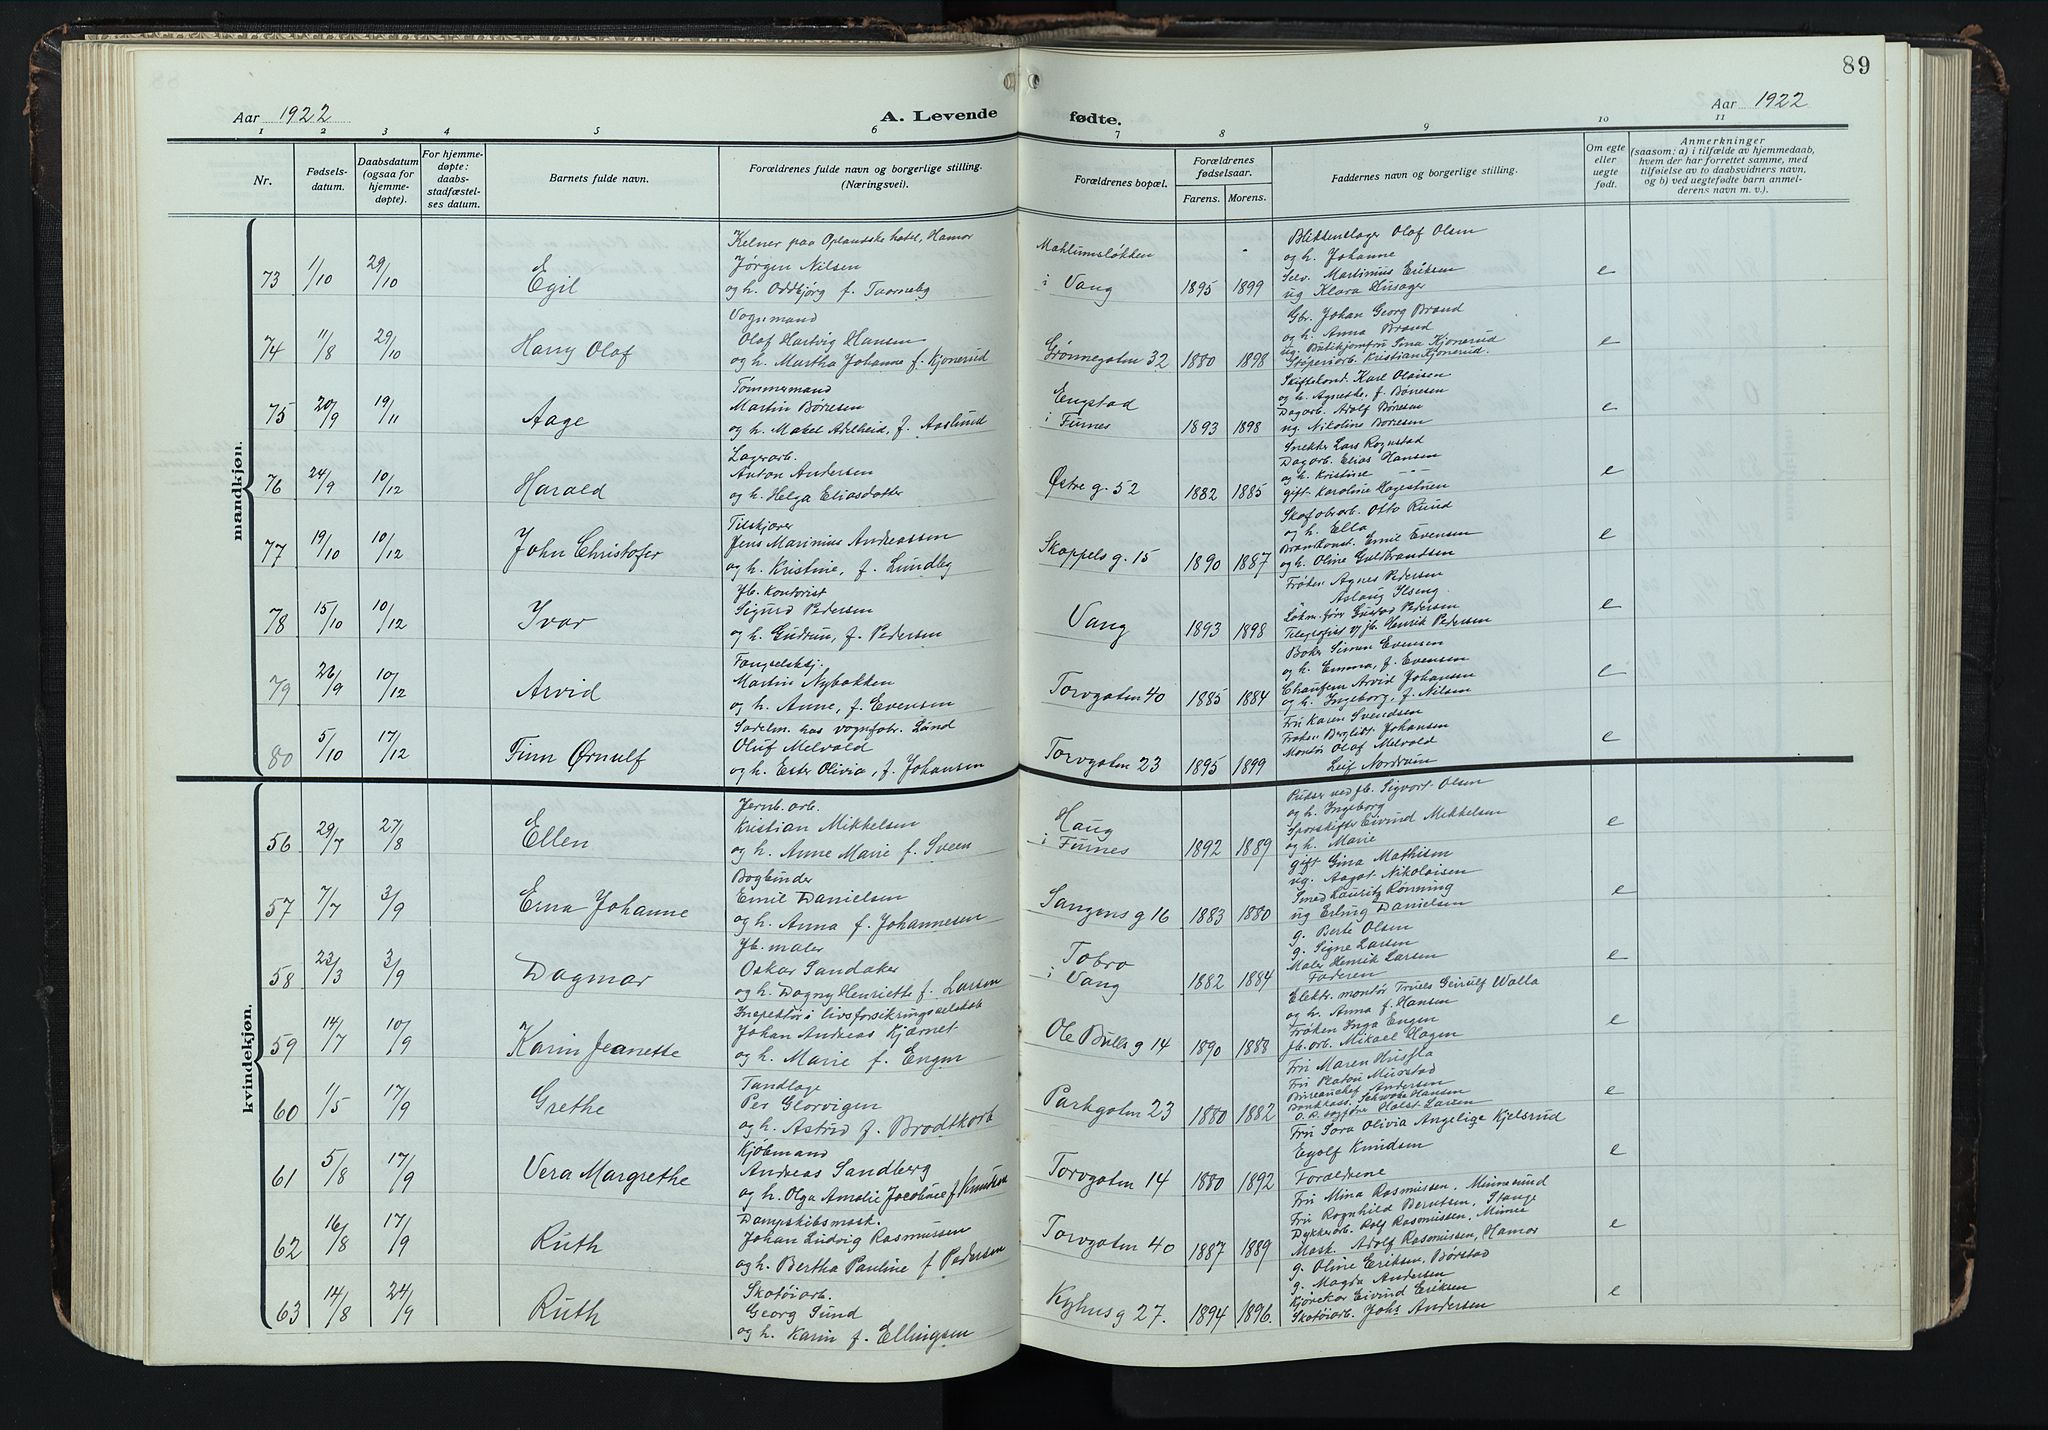 89
Aar 1922
A. Levende fødte.
Aar 1922
1 2 3 4 5 6 7 8 9 10 11
Nr.
Fødsels-
datum.
Daabsdatum
(ogsaa for
hjemme-
døpte).
For hjemme-
døpte:
daabs-
stadfæstel-
ses datum.
Barnets fulde navn.
Forældrenes fulde navn og borgerlige stilling.
(Næringsvei).
Forældrenes bopæl.
Forældrenes
fødselsaar.
Farens. Morens.
Faddernes navn og borgerlige stilling.
Om egte
eller
uegte
født.
Anmerkninger
(saasom: a) i tilfælde av hjemmedaab,
hvem der har forrettet samme, med
tilføielse av to daabsvidners navn,
og b) ved uegtefødte barn anmel-
derens navn m. v.).
mandkjøn.
73 1/10 29/10 Egil
Kelner paa Oplandske hotel, Hamar
Jørgen Nilsen
og h. Oddbjørg f. Taarneby
Maklumsløkken
i Vang 1895 1899
Blikkenslager Olaf Olsen
og h. Johanne
Selv. Martinius Eriksen
ug Klara Husager
e
74 11/8 29/10 Harry Olaf
Vognmand
Olaf Hartvig Hansen
og h. Martha Johanne f. Kjonerud
Grønnegaten 32 1880 1898
Gbr. Johan Georg Brand
og h. Anna Brand
ug. Butikjomfru Sina Kjonerud
Støperiarb. Kristian Kjonerud.
e
75 20/9 19/11 Aage
Tømmermand
Martin Børresen
og h. Mabel Adelheid, f. Aaslund
Engstad
i Furnes 1893 1898
Skiftekond. Karl Olaisen
og h. Agnethe, f. Børresen
Dagarb. Adolf Børresen
ug. Nikoline Børresen
e
76 24/9 10/12 Harald
Lagerarb.
Anton Andersen
og h. Helga Eliasdatter
Østre g. 52 1882 1885
Snekker Lars Rognstad
Dagarb. Elias Hansen
og h. Kristine -"-
gift Karoline Hagestuen
e
77 19/10 10/12 John Christofer
Tilskjærer
Jens Marinius Andreassen
og h. Kristine, f. Lundby
Skappels g. 15 1890 1887
Skofabarb. Otto Ruud
og h. Ella
Brandkonst. Emil Evensen
og h. Oline Guldbrandsen
e
78 15/10 10/12 Ivar
Jb. kontorist
Sigurd Pedersen
og h. Gudrun, f. Pedersen
Vang 1893 1898
Frøken Agnes Pedersen
Aslaug Ilseng
Lokm.fører Gustav Pedersen
Telegrafist v/ jb. Henrik Pedersen
e
79 26/9 10/12 Arvid
Fængselsbtj.
Martin Nybakken
og h. Anne, f. Evensen
Torvgaten 40 1885 1884
Baker Simen Evensen
og h. Emma, f. Evensen
Chauffeur Arvid Johansen
og h. Ingeborg, f. Nilsen
e
80 5/10 17/12 Finn Ørnulf
Sadelm. hos vognfabr. Lund
Oluf Melvold
og h. Ester Olivia, f. Johansen
Torvgaten 23 1895 1899
Fru Karen Svendsen
Frøken Bergliot Johansen
Montør Olaf Melvold
Leif Nordrum
e
kvindekjøn.
56 29/7 27/8 Ellen
Jernb. arb.
Kristian Mikkelsen
og h. Anne Marie f. Sveen
Haug
i Furnes 1892 1889
Pudser ved jb. Sigvart Olsen
og h. Ingeborg
Sporskifter Eivind Mikkelsen
og h. Marie
e
57 7/7 3/9 Erna Johanne
Bogbinder
Emil Danielsen
og h. Anna f. Johannesen
Sangens g 16 1883 1880
gift Gina Mathisen
ug. Aagot Nikolaisen
Smed Lauritz Rønning
ug Erling Danielsen
e
58 23/3 3/9 Dagmar
Jb. maler
Oskar Sandaker
og h. Dagny Henriette f. Larsen
Tobro
i Vang 1882 1884
g. Berte Olsen
g. Signe Larsen
Maler Henrik Larsen
Faderen
e
59 14/7 10/9 Karin Jeanette
Inspektør i livsforsikringsselskab
Johan Andreas Kjærnet
og h. Marie f. Engen
Ole Bulls g 14 1890 1888
Elektr. montør Truels Geirulf Walla
og h. Anna f. Hansen
Frøken Inga Engen
Jb. arb. Mikael Hagen
e
60 1/5 17/9 Grethe
Tandlæge
Per Glørvigen
og h. Astrid f. Brodtkorb
Parkgaten 23 1880 1882
Fru Maren Hrisfla
Fru Platou Murstad
Bureauchef Andersen
Bankkass. Schwabe Hansen
O.r. sagfører Holst Larsen
e
61 5/8 17/9 Vera Margrethe
Kjøbmand
Andreas Sandberg
og h. Olga Amalie Jacobine f Knudsen
Torvgaten 14 1880 1892
Fru Sara Olivia Angelige Kjelsrud
Eyolf Knudsen
Forældrene
e
62 16/8 17/9 Ruth
Dampskibsmask.
Johan Ludvig Rasmussen
og h. Bertha Pauline f Pedersen
Torvgaten 40 1887 1889
Fru Mina Rasmussen, Minnesund
Fru Ragnhild Berntsen, Stange
Dykkerarb. Rolf Rasmussen, Minne
Mask. Adolf Rasmussen, Hamar
e
63 14/8 24/9 Ruth
Skotøiarb.
Georg Sund
og h. Karin f. Ellingsen
Kyhus g 27. 1894 1896.
g. Oline Eriksen, Børstad
g. Magda Andersen
Kjørekar Eivind Eriksen
Skotøiarb. Johs Andersen
e